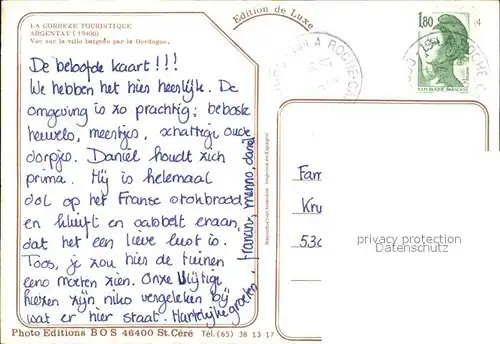 LA CORREZE TOURISTIQUE
ARGENTAT (19400)
Vue sur la ville baignée par la Dordogne.
Edition de Luxe
1,80
REPUBLIQUE FRANÇAISE
4
De beloofde kaart!!!
We hebben het hier heerlijk. De
omgeving is zo prachtig; beboste
heuvels, meertjes, schattige oude
dorpjes. Daniël houdt zich
prima. Hij is helemaal
dol op het Franse stokbrood
en kluift en sabbelt eraan,
dat het een lieve lust is.
Toos, je zou hier de tuinen
eens moeten zien. Onze vlijtige
liezen zijn niks vergeleken bij
wat er hier staat. Hartelijke groeten,
francien, menno, daniel
Reproduction Interdite
Imprimé en Espagne
Fam
Kru
530
privacy protection
Datenschutz
Photo Editions BOS 46400 St.Céré Tél. (65) 38 13 17